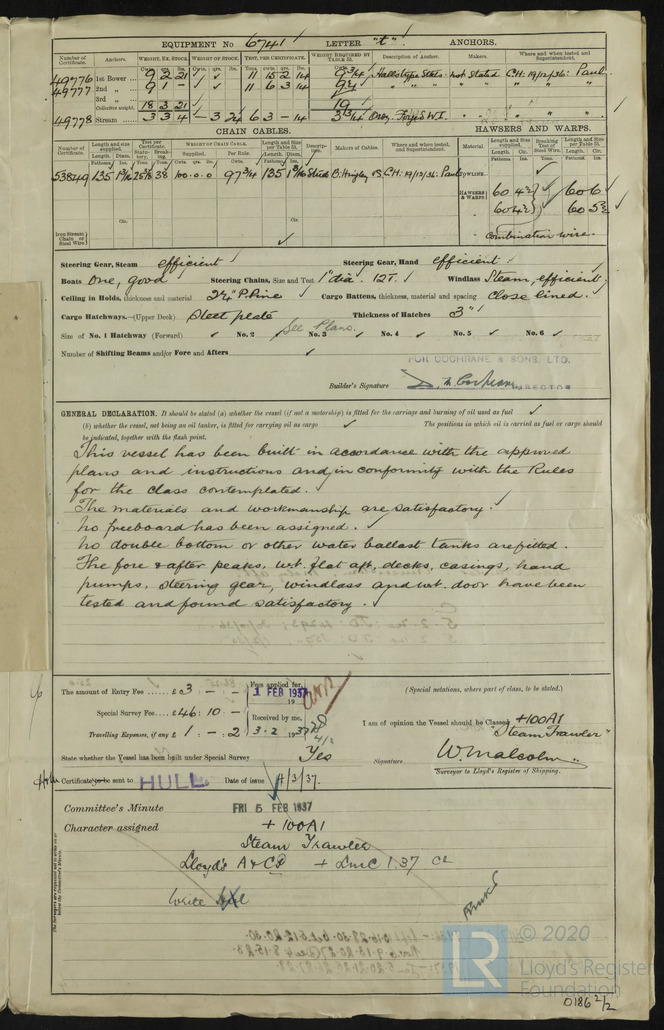 EQUIPMENT No 6741 LETTER "t" ANCHORS.
Number of Certificate. Anchors. WEIGHT, EX. STOCK. WEIGHT OF STOCK. TEST, PER CERTIFICATE. WEIGHT REQUIRED BY TABLE 53. Description of Anchor. Makers. Where and when tested and Superintendent.
49776 1st Bower 9 2 21 11 15 2 14 9 3/4 Not Stated C.H. 19/12/36: Paul
49777 2nd " 9 1 - 11 6 3 14 9 1/4 " " " " "
3rd "
Collective weight. 18 3 21 19
49778 Stream 3 3 4 - 3 24 6 3 - 14
CHAIN CABLES. HAWSERS AND WARPS.
Number of Certificate. Length and size supplied. Test per Certificate. WEIGHT OF CHAIN CABLE. Length and Size per Table 53. Description. Makers of Cables. Where and when tested and Superintendent. Material Length and Size supplied. Breaking Test of Steel Wire. Length and Size per Table 53.
Length. Diam. Statutory. Breaking. Supplied. Per Rule. Length. Diam. Length. Cir. Length. Cir.
53849 135 100.0.0 97 3/4 135 Stud B. Hingley C.H: 19/12/36: Paul
HAWSERS & WARPS 60 4 1/2 60 6
60 4 1/2 60 5 1/2
Iron Stream Chain or Steel Wire
Combination wire.
Steering Gear, Steam efficient Steering Gear, Hand efficient
Boats One, good Steering Chains, Size and Test 1" dia. 12T. Windlass Steam, efficient.
Ceiling in Holds, thickness and material 2 1/4" P. Pine Cargo Battens, thickness, material and spacing Close lined.
Cargo Hatchways.—(Upper Deck) Steel plate Thickness of Hatches 3"
See Plans.
Size of No. 1 Hatchway (Forward) No. 2 No. 3 No. 4 No. 5 No. 6
Number of Shifting Beams and/or Fore and Afters
FOR COCHRANE & SONS, LTD.
Builder's Signature DIRECTOR
GENERAL DECLARATION. It should be stated (a) whether the vessel (if not a motorship) is fitted for the carriage and burning of oil used as fuel
(b) whether the vessel, not being an oil tanker, is fitted for carrying oil as cargo The positions in which oil is carried as fuel or cargo should
be indicated, together with the flash point.
This vessel has been built in accordance with the approved
plans and instructions and in conformity with the Rules
for the class contemplated.
The materials and workmanship are satisfactory.
No freeboard has been assigned.
No double bottom or other water ballast tanks are fitted.
The fore & after peaks, W.T. flat aft, decks, casings, hand
pumps, steering gear, windlass and W.T. door have been
tested and found satisfactory.
The amount of Entry Fee ..... £ 3 : - : - Fees applied for, 1 FEB 1937 (Special notations, where part of class, to be stated.)
Special Survey Fee .... £ 46 : 10 : - Received by me, I am of opinion the Vessel should be Classed +100A1
Travelling Expenses, if any £ 1 : - : 2 3.2.1937 "Steam Trawler"
State whether the Vessel has been built under Special Survey Yes Signature W. Malcolm
Surveyor to Lloyd's Register of Shipping.
Certificate to be sent to HULL Date of issue 4/3/37.
Committee's Minute FRI 5 FEB 1937
Character assigned +100A1
Steam Trawler
Lloyd's A & CP + LMC 1.37 CL
Write
LR © 2020
Lloyd's Register
Foundation
0186 2/2